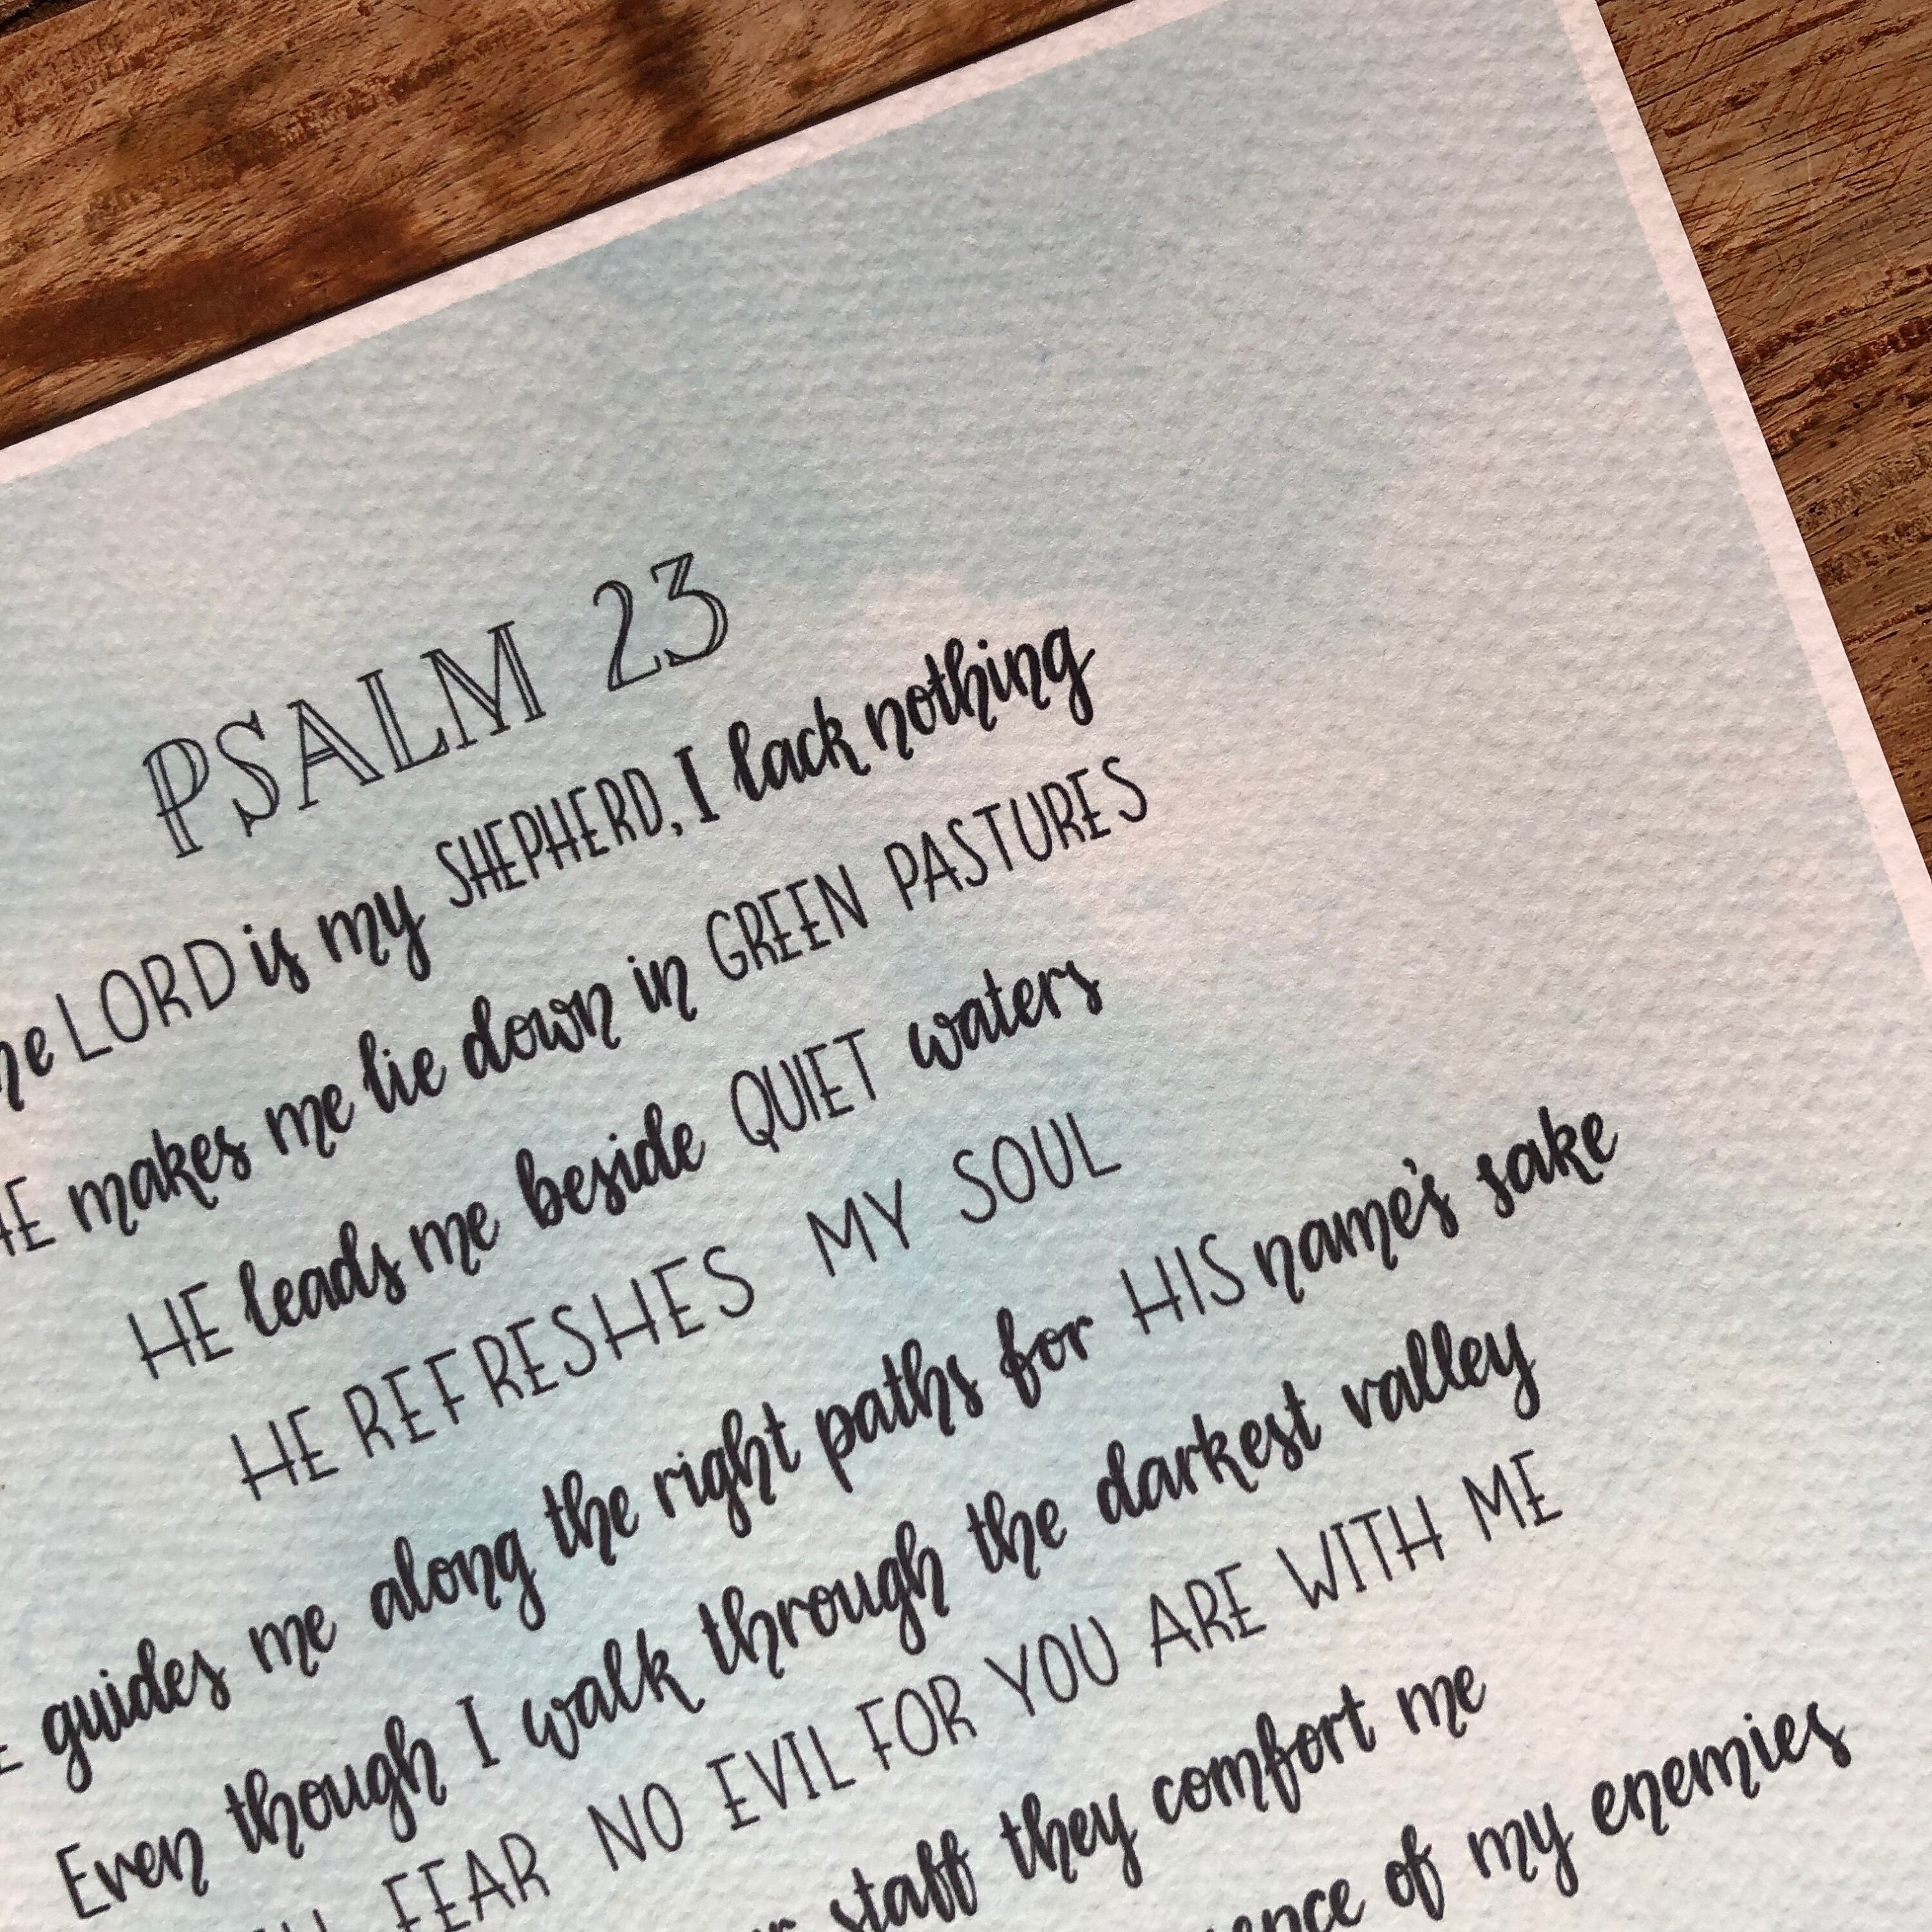 PSALM 23
he LORD is my SHEPHERD, I lack nothing
HE makes me lie down in GREEN PASTURES
HE leads me beside QUIET waters
HE REFRESHES MY SOUL
guides me along the right paths for HIS name's sake
Even though I walk through the darkest valley
FEAR NO EVIL FOR YOU ARE WITH ME
staff they comfort me
of my enemies